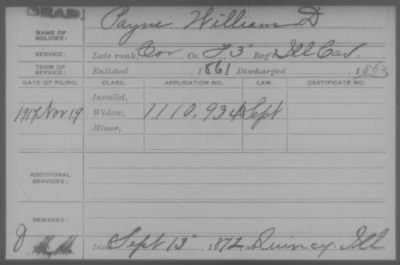 DEAD.
NAME OF SOLDIER: Payne William D
SERVICE: Late rank, Cor Co. F, 3" Reg't Ill Cav.
TERM OF SERVICE: Enlisted , 1861 Discharged , 186
DATE OF FILING. CLASS. APPLICATION NO. LAW. CERTIFICATE NO.
Invalid,
1917 Nov 19 Widow, 1110,934 Sept
Minor,
ADDITIONAL SERVICES:
REMARKS:
Died Sept 15" 1872, Quincy Ill